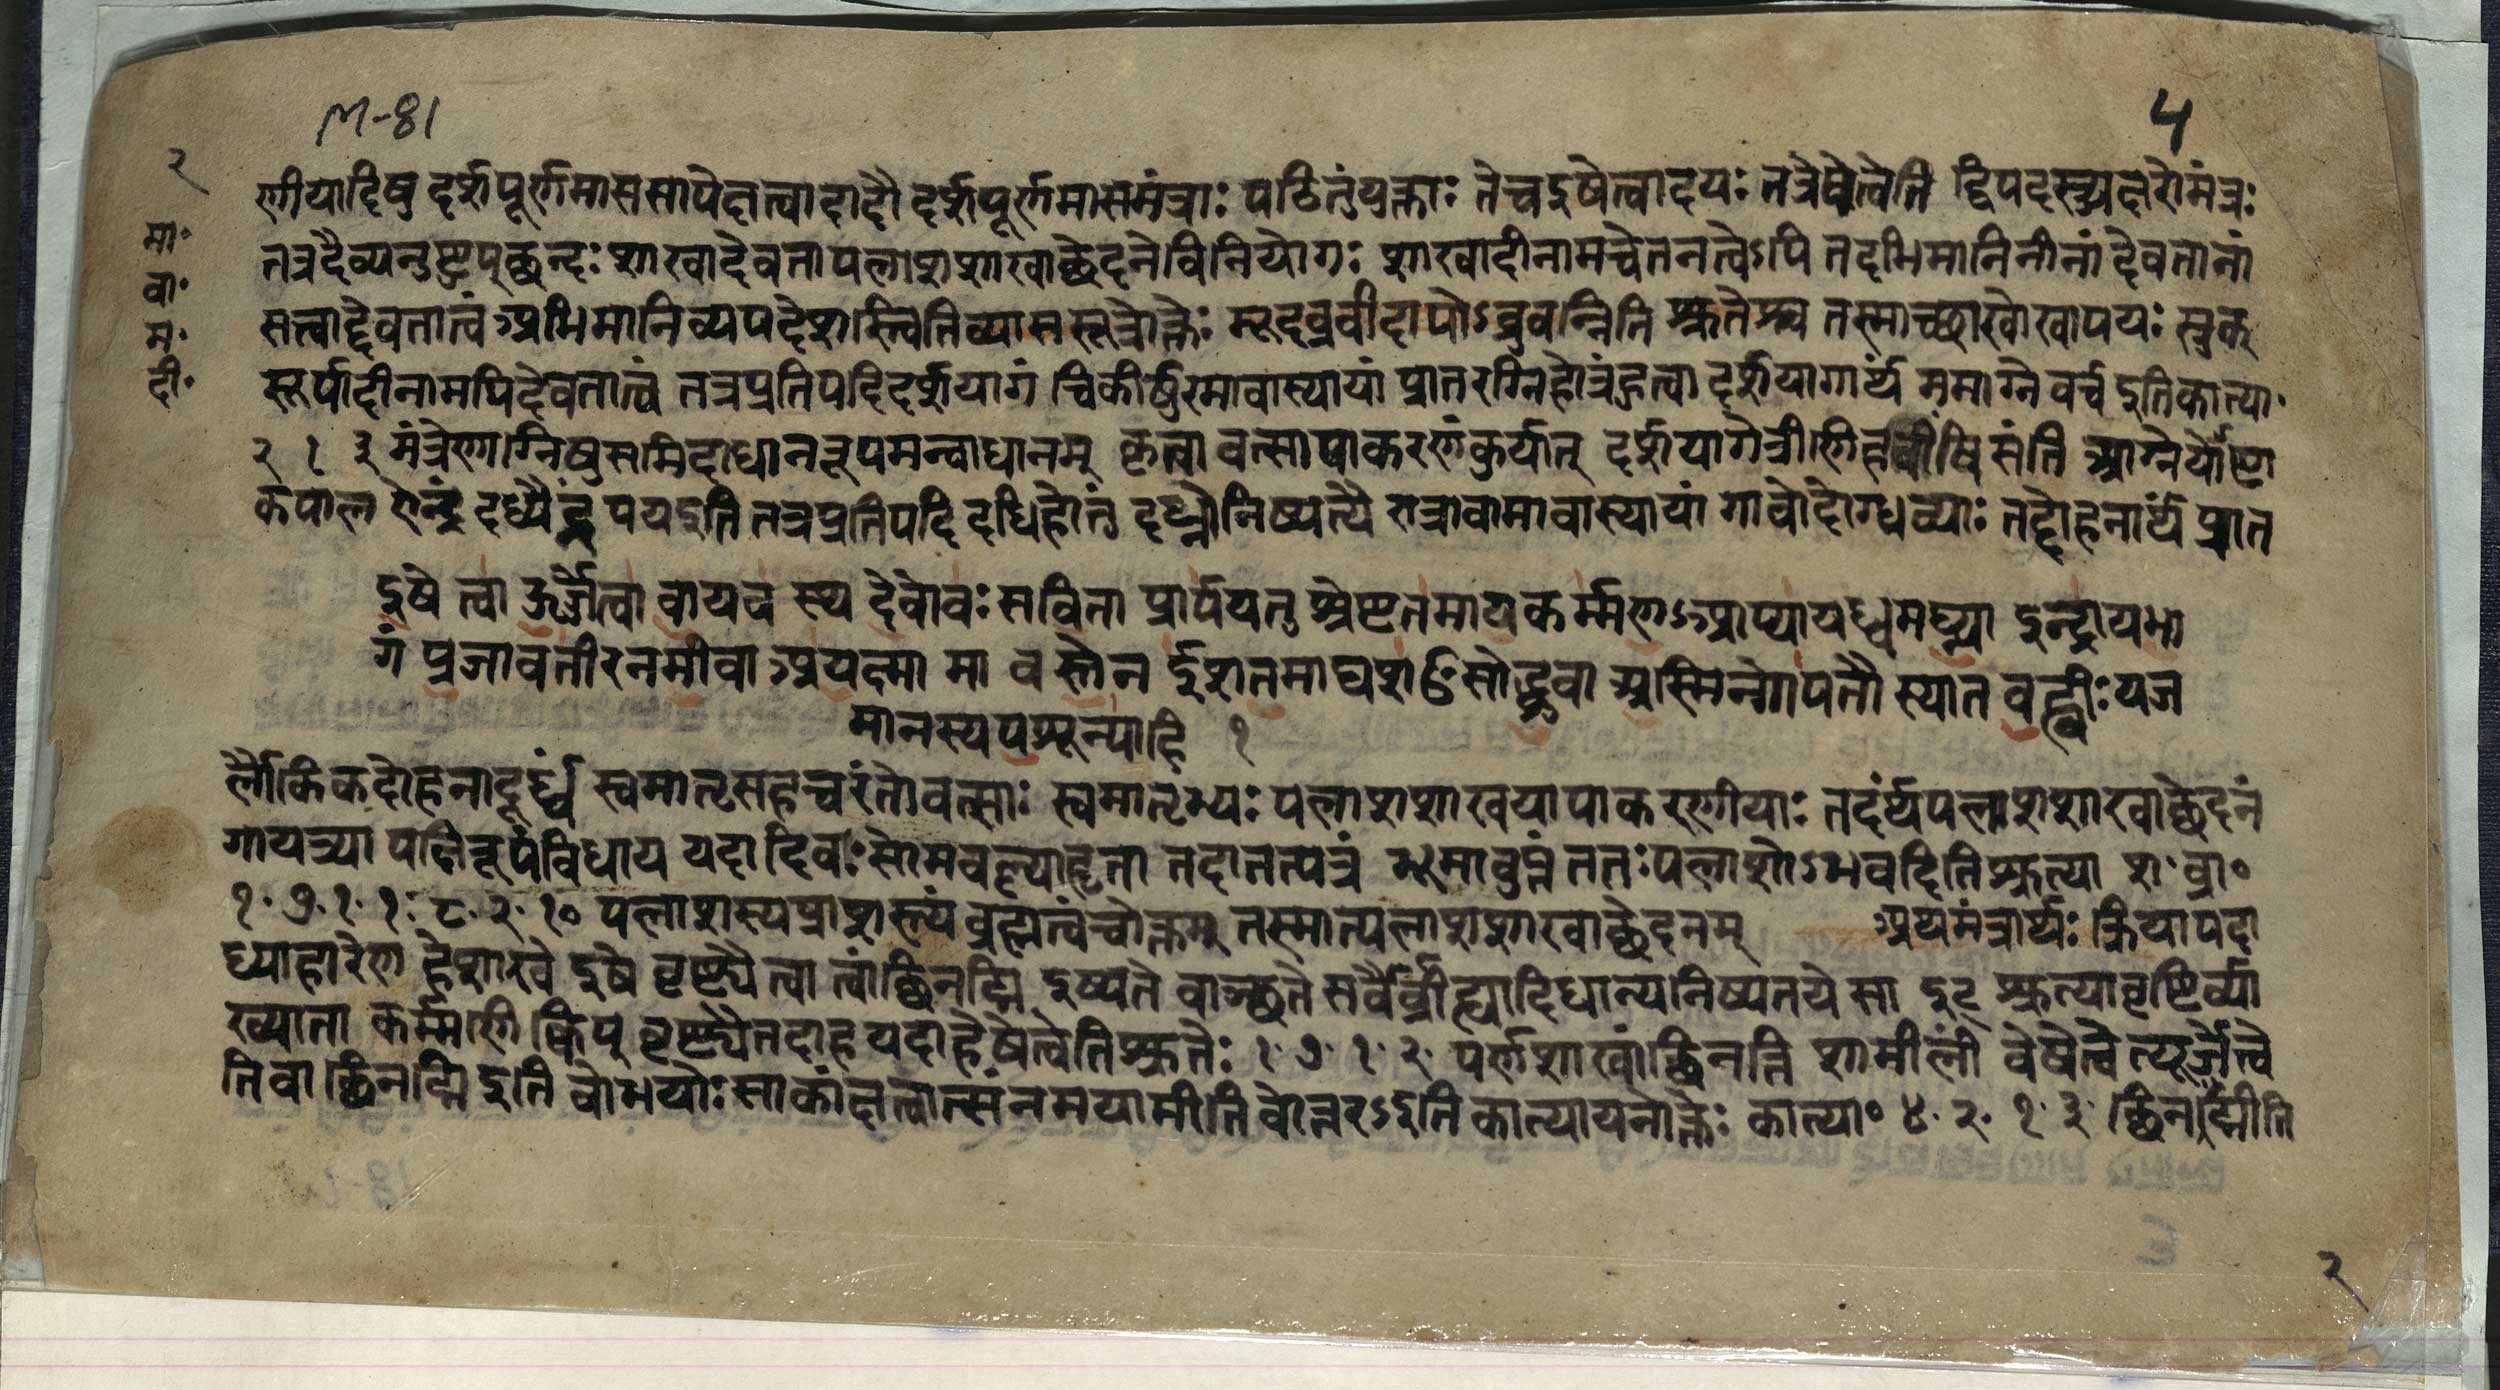 M-81
5
२
मा॰
वा॰
म॰
दी॰
णीयादिषु दर्शपूर्णमाससापेक्षत्वादादौ दर्शपूर्णमासमंत्राः पठितुंयुक्ताः तेचइषेत्वादयः तत्रेषेत्वेति द्विपदस्त्र्यक्षरोमंत्रः
तत्रदैव्यनुष्टुप्छन्दः शाखादेवतापलाशशाखाछेदनेविनियोगः शाखादीनामचेतनत्वेऽपि तदभिमानिनीनां देवतानां
सत्त्वाद्देवतात्वं अभिमानिव्यपदेशस्त्वितिव्याससूत्रोक्तेः मृदब्रवीदापोऽब्रुवन्निति श्रुतेश्च तस्माच्छाखोखापयः स्रुक्
शूर्पादीनामपिदेवतात्वं तत्रप्रतिपदिदर्शयागं चिकीर्षुरमावास्यायां प्रातरग्निहोत्रंहुत्वा दर्शयागार्थं ममाग्ने वर्च्च इतिकात्या॰
२ १ ३ मंत्रेणाग्निषुसमिदाधानरूपमन्वाधानम् कृत्वा वत्सापाकरणंकुर्यात् दर्शयागेत्रीणिहवींषि संति आग्नेयोष्टा
कपाल ऐन्द्रं दध्यैंद्रं पयइति तत्रप्रतिपदि दधिहोतुं दध्नोनिष्पत्यै रात्रावामावास्यायां गावोदोग्धव्याः तद्दोहनार्थं प्रात
इषे त्वा ऊर्ज्जेत्वा वायव स्थ देवोवः सविता प्रार्पयतु श्रेष्टतमायकर्म्मणऽआप्यायध्वमघ्न्या इन्द्रायभा
गं प्रजावतीरनमीवा अयक्ष्मा मा व स्तेन ईशतमाघशꣳसोद्ध्रुवा अस्मिन्गोपतौ स्यात वह्वीः यज
मानस्यपशून्पाहि १
र्लौकिकदोहनादूर्ध्वं स्वमातृसहचरंतोवत्साः स्वमातृभ्यः पलाशशाखयापाकरणीयाः तदर्थंपलाशशाखाछेदनं
गायत्र्या पक्षिरूपंविधाय यदा दिवः सोमवल्ल्याहृता तदातत्पत्रं भूमावुप्तं ततःपलाशोऽभवदितिश्रुत्या श॰ ब्रा॰
१॰ ७॰ १॰ १॰ ८॰ २॰ १० पलाशस्यप्राशस्त्यंब्रह्मत्वंचोक्तम् तस्मात्पलाशशाखाछेदनम् अथमंत्रार्थः क्रियापदा
ध्याहारेण हेशाखे इषे वृष्ट्यै त्वा त्वांछिनद्मि इष्यते वाञ्छ्यते सर्वैर्व्रीह्यादिधान्यनिष्पतये सा इट् श्रुत्यावृष्टिर्व्या
ख्याता कर्म्मणि क्विप् वृष्ट्यैतदाह यदाहेषेत्वेतिश्रुतेः १॰ ७॰ १॰ २॰ पर्णशाखांछिनत्ति शामीलीं वेषेत्वेत्यूर्ज्जेत्वे
तिवा छिनद्मि इति वोभयोः साकांक्षत्वात्संनमयामीति वोत्तरऽइति कात्यायनोक्तेः कात्या॰ ४॰ २॰ १॰ ३॰ छिनद्मीति
२